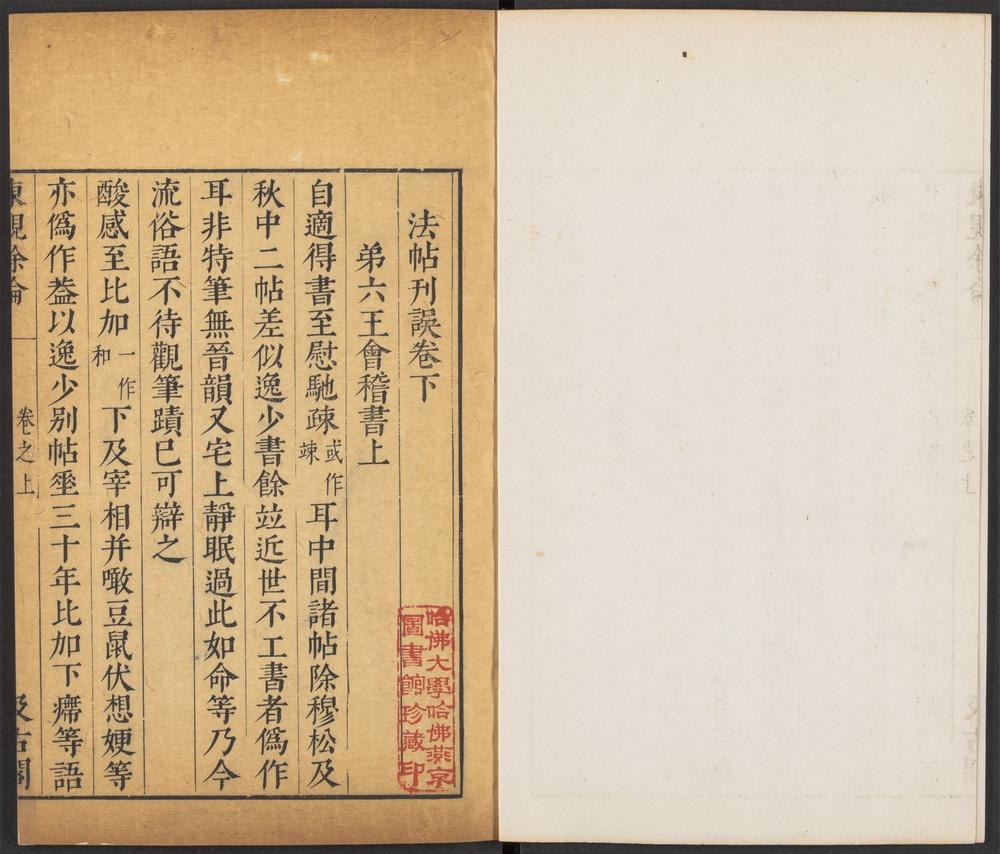 法帖刊誤卷下
弟六王會稽書上
自適得書至慰馳疎或作竦耳中間諸帖除穆松及
秋中二帖差似逸少書餘竝近世不工書者僞作
耳非特筆無晉韻又宅上靜眠過此如命等乃今
流俗語不待觀筆蹟已可辯之
酸感至比加一作和下及宰相并噉豆鼠伏想㛐等
亦僞作葢以逸少别帖垩三十年比加下㾹等語
東觀餘論 卷之上 汲古閣
哈佛大學哈佛燕京
圖書館珍藏印